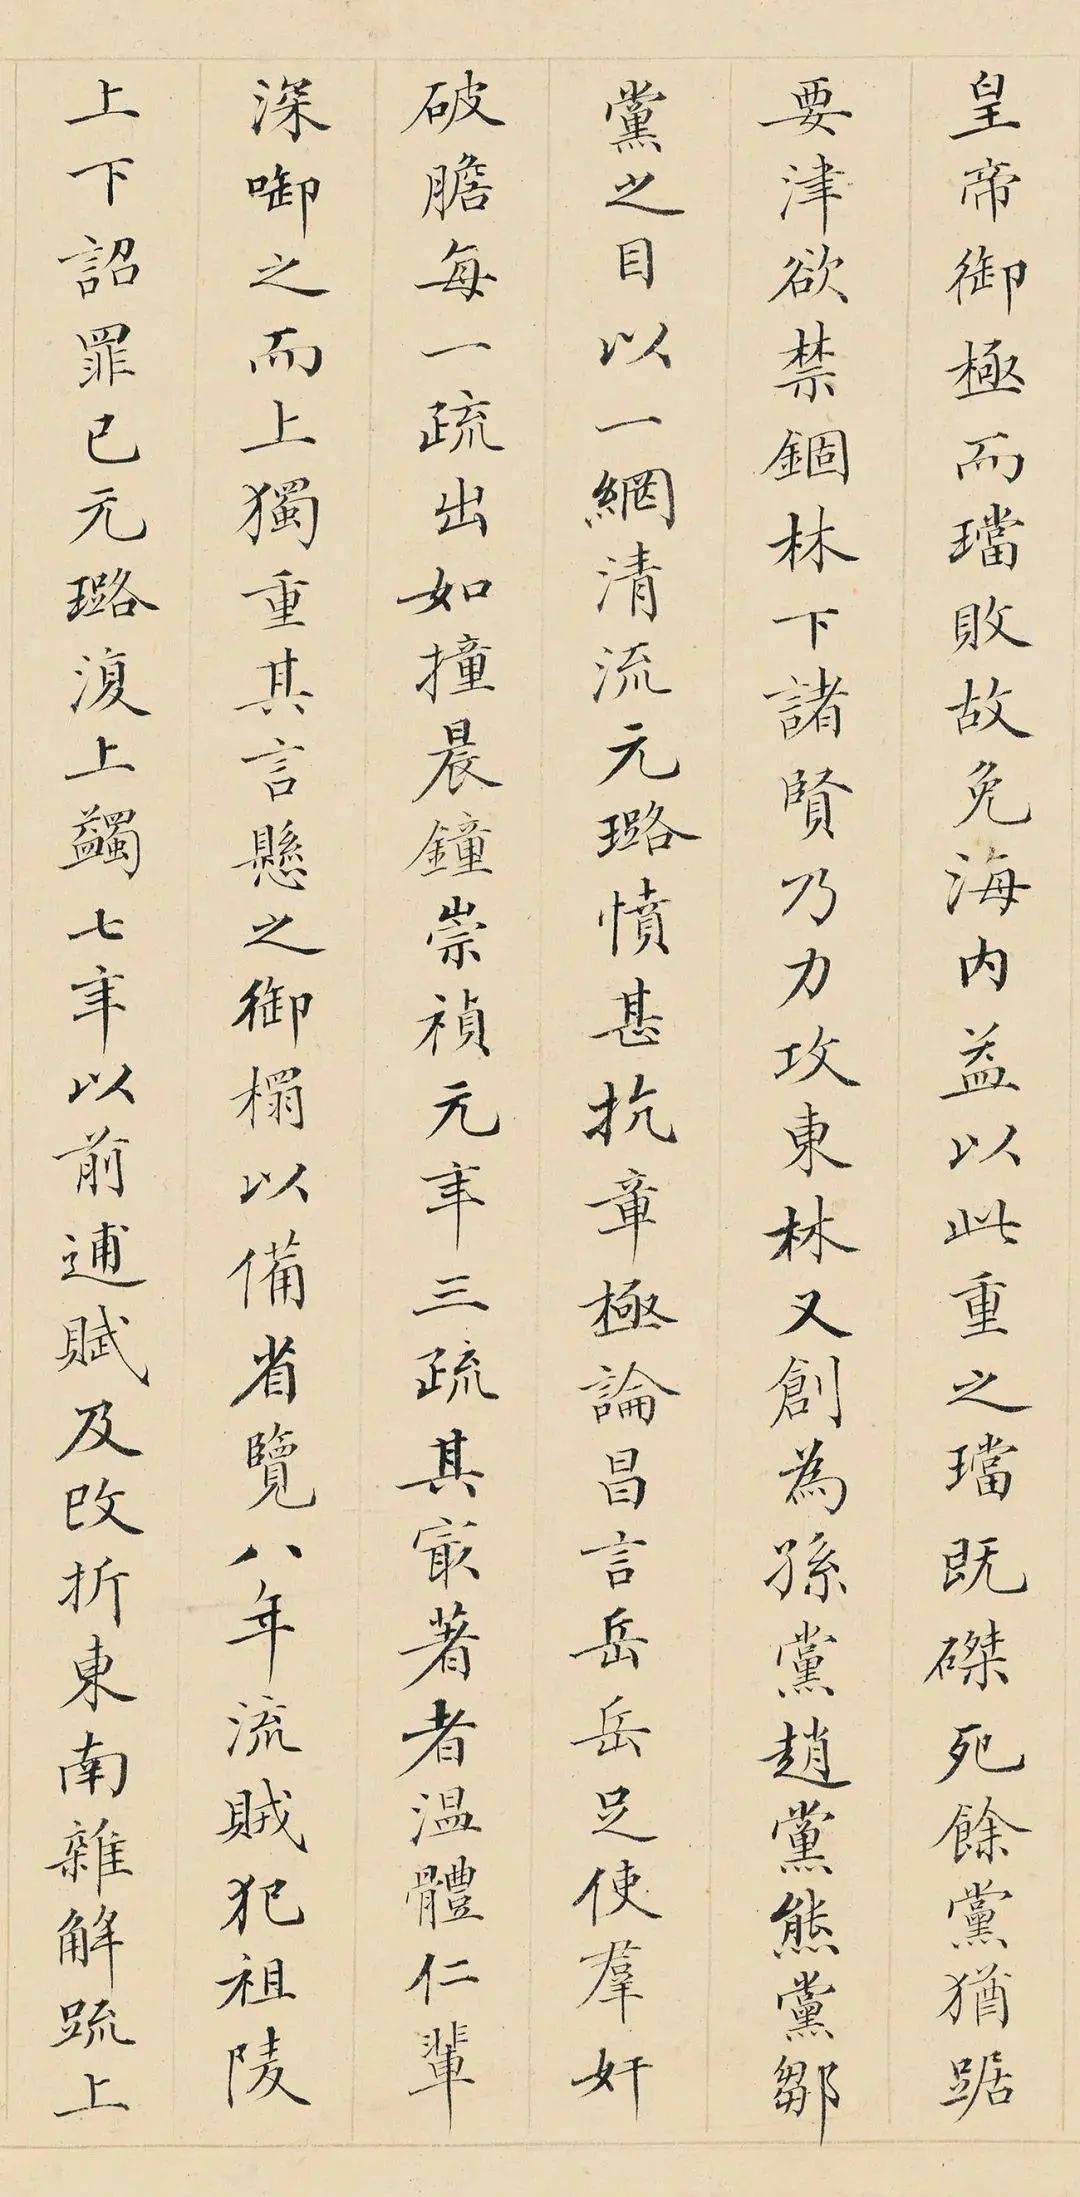 皇帝御極而璫敗故免海内益以此重之璫既磔死餘黨猶踞
要津欲禁錮林下諸賢乃力攻東林又創為孫黨趙黨熊黨鄒
黨之目以一網清流元璐憤甚抗章極論昌言岳岳足使羣奸
破膽每一疏出如撞晨鐘崇禎元年三疏其㝡著者温體仁輩
深啣之而上獨重其言懸之御榻以備省覽八年流賊犯祖陵
上下詔罪已元璐復上蠲七年以前逋賦及改折東南雜解疏上